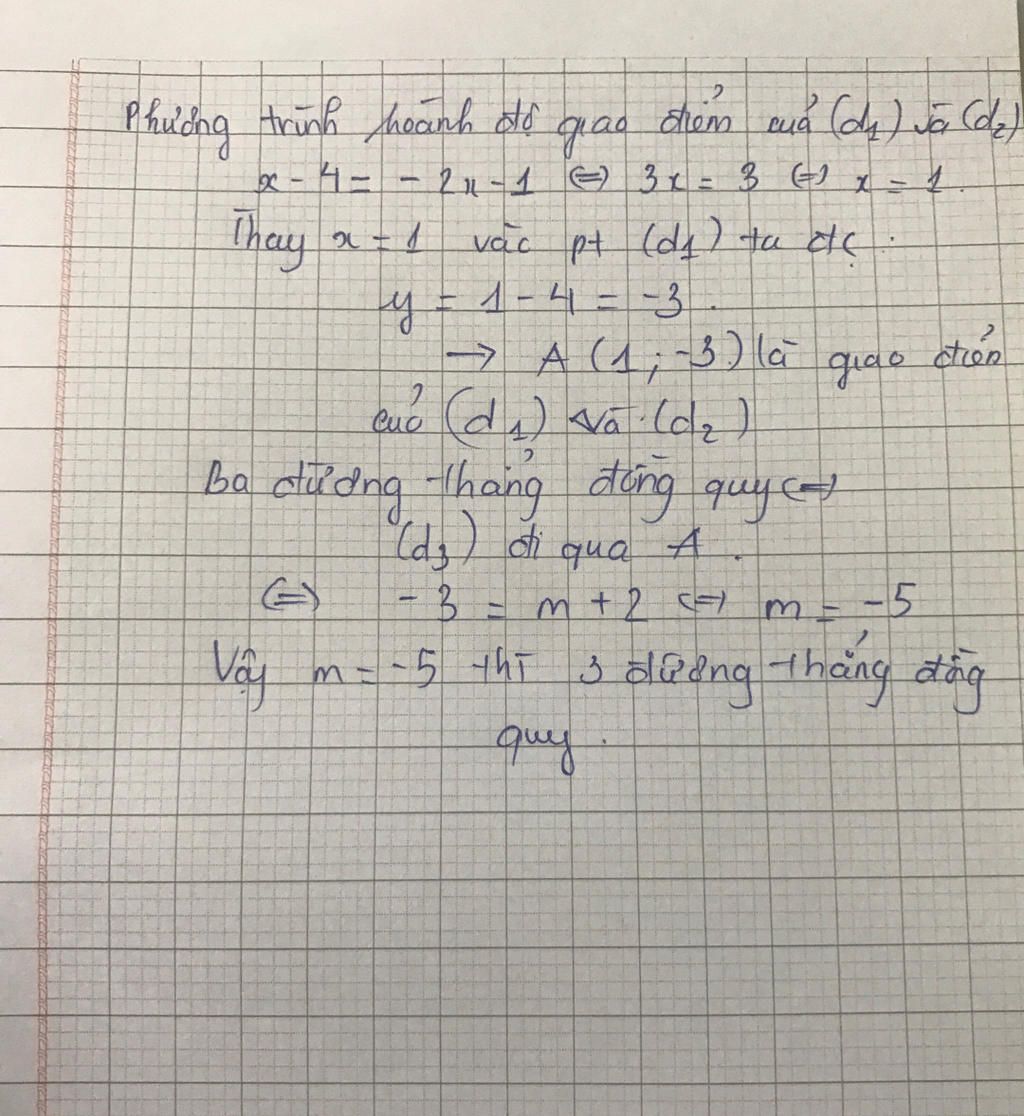 Phương trình hoành độ giao điểm của (d₁) và (d₂)
x - 4 = - 2x - 1 ⇔ 3x = 3 ⇔ x = 1.
Thay x = 1 vào pt (d1) ta đc :
y = 1 - 4 = -3 .
→ A (1 ; -3) là giao điểm
của (d₁) và (d₂)
Ba đường thẳng đồng quy ⇔
(d₃) đi qua A .
⇔ - 3 = m + 2 ⇔ m = -5
Vậy m = -5 thì 3 đường thẳng đồng
quy .